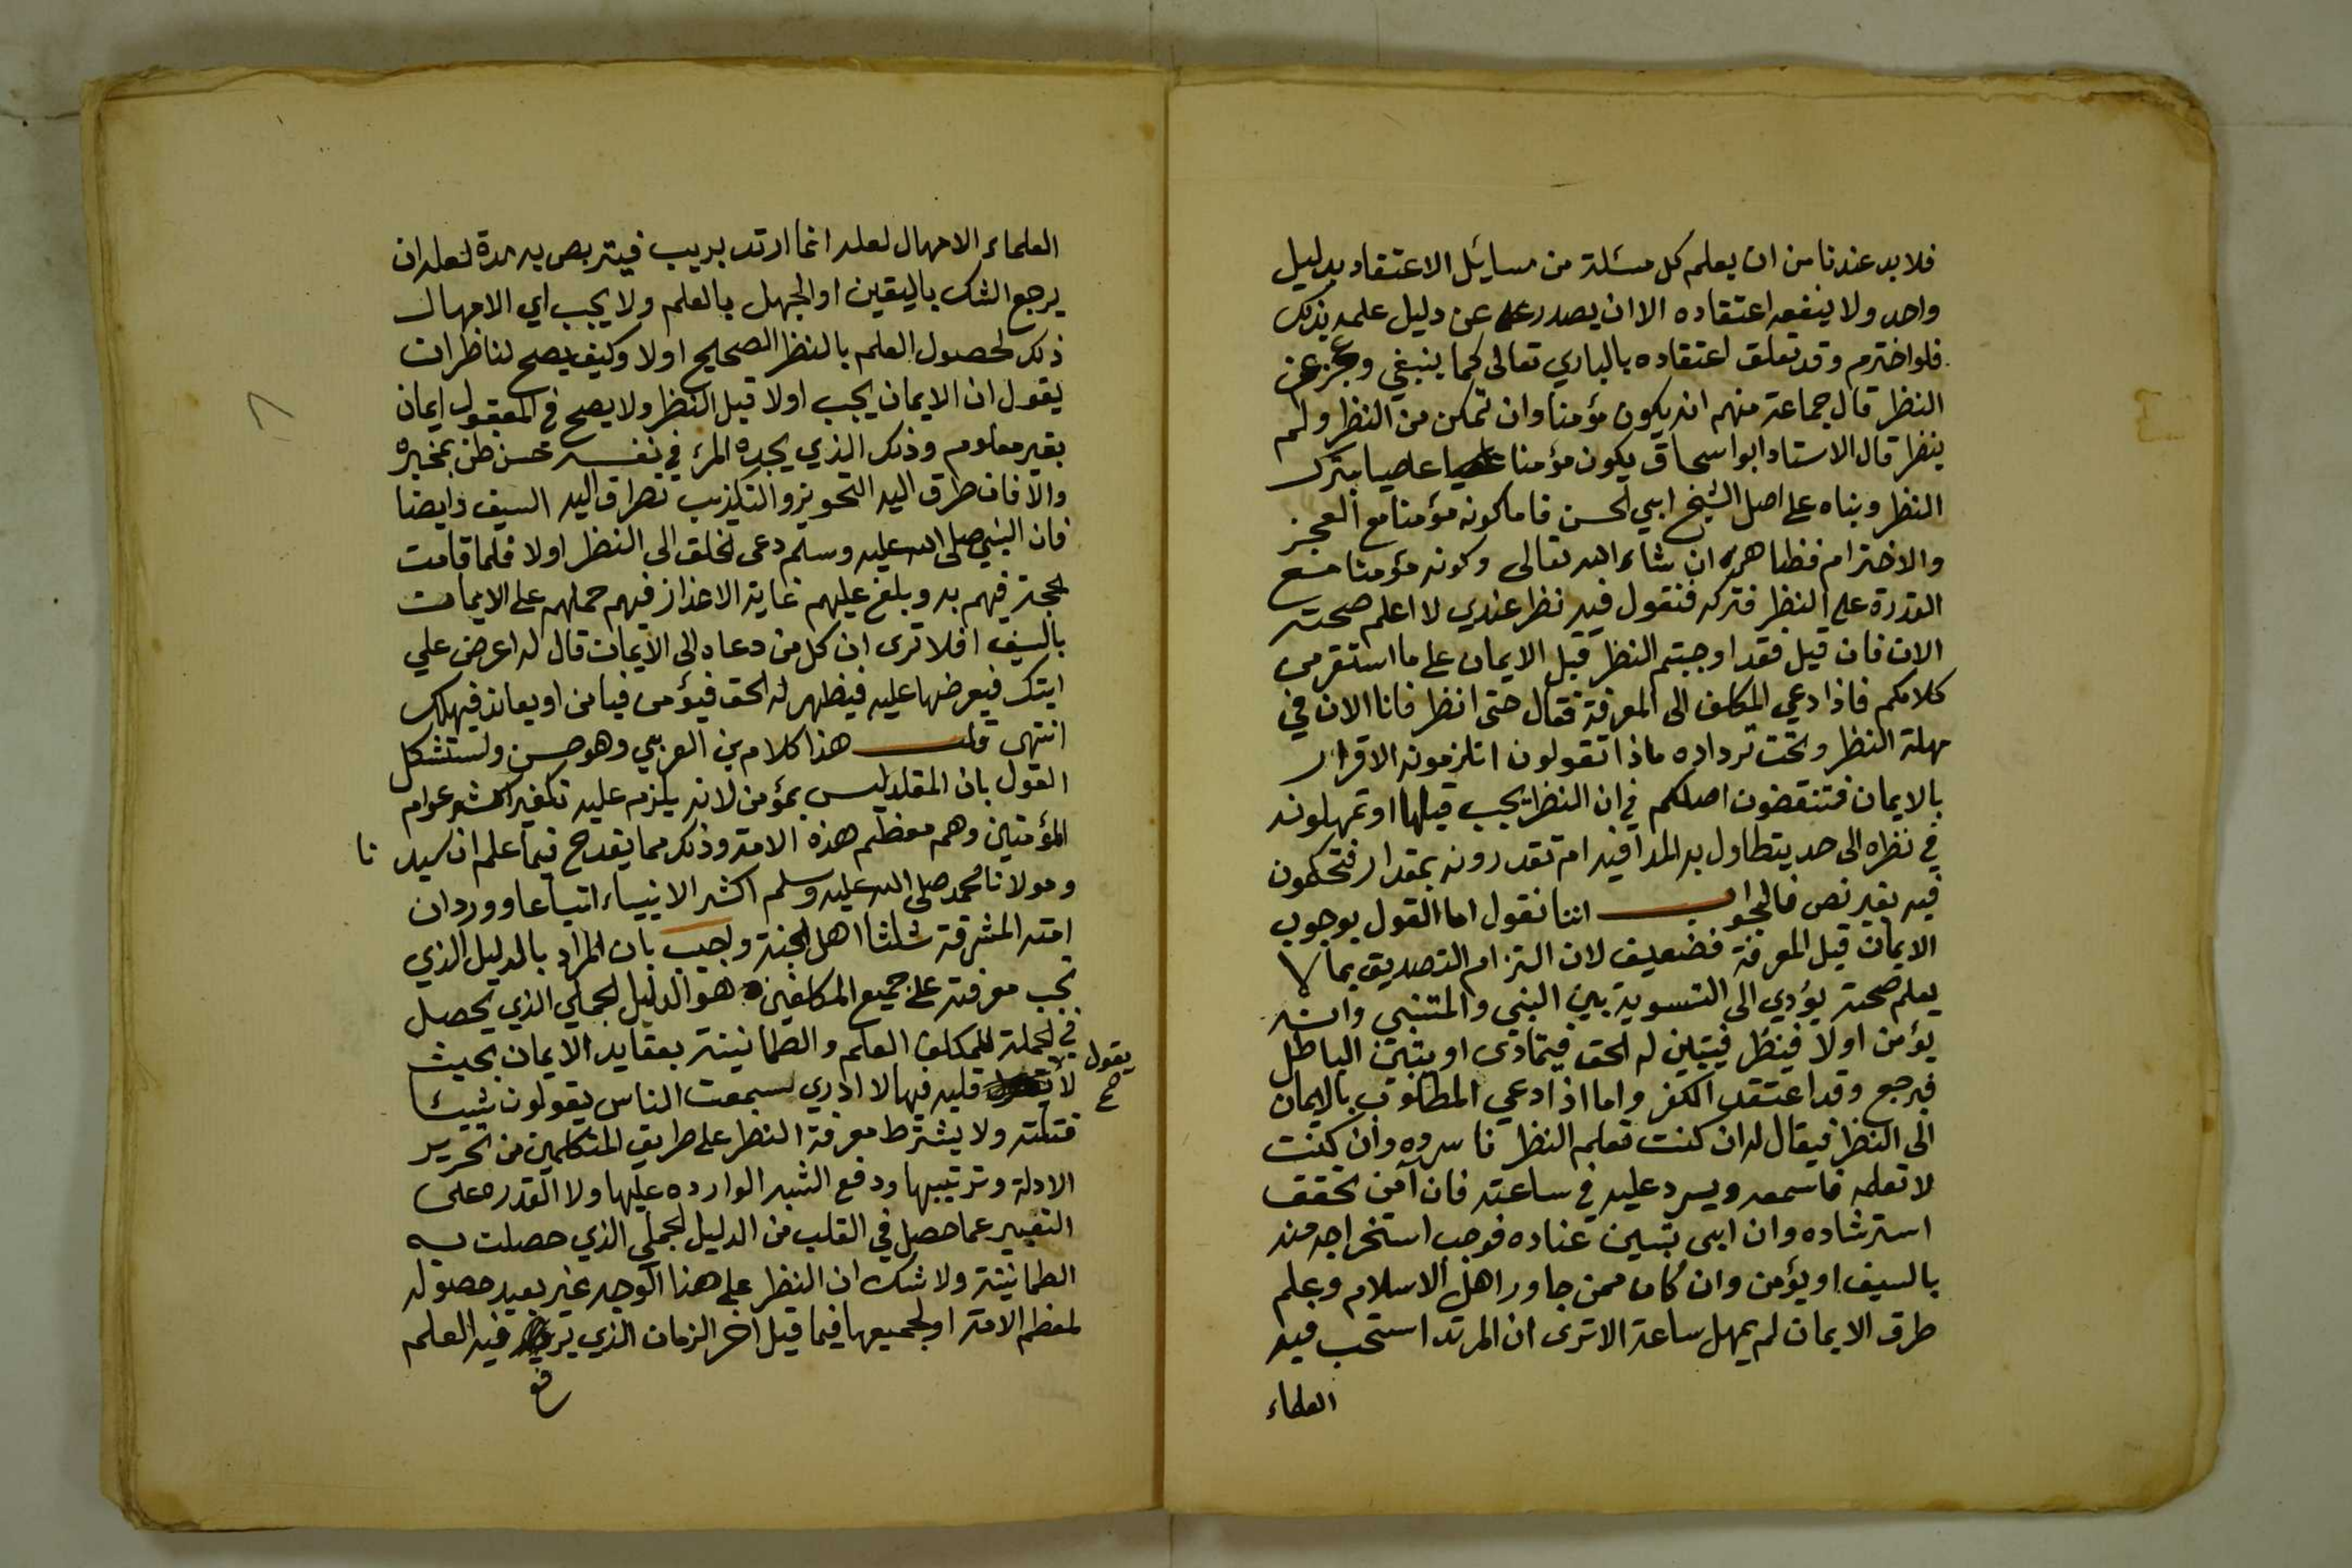 فلابد عندنا من ان يعلم كل مسئلة من مسايل الاعتقاد بدليل
واحد ولا ينفعه اعتقاده الا ان يصدر عن دليل علمه بذلك
فلو اخترم وقد تعلق اعتقاده بالباري تعالى كما ينبغي وعجز عن
النظر قال جماعة منهم انه يكون مؤمنا وان تمكن من النظر ولم
ينظر قال الاستاد ابو اسحاق يكون مؤمنا عاصيا بترك
النظر وبناه على اصل الشيخ ابي الحسن فاما كونه مؤمنا مع العجز
والاخترام فظاهر ان شاء الله تعالى وكونه مؤمنا مع
القدرة على النظر فتركه فنقول فيه نظر عندي لا اعلم صحته
الان فان قيل فقد اوجبتم النظر قبل الايمان على ما استقر من
كلامكم فاذا دعي المكلف الى المعرفة فقال حتى انظر فانا الان في
مهلة النظر وتحت ترداده ماذا تقولون اتلزمونه الاقرار
بالايمان فتنقضون اصلكم في ان النظر يجب قبلها او تمهلونه
في نظره الى حد يتطاول به المدا فيه ام تقدرونه بمقدار فتحكمون
فيه بغير نص فالجواب اننا نقول اما القول بوجوب
الايمان قبل المعرفة فضعيف لان التزام التصديق بما لا
يعلم صحته يؤدي الى التسوية بين النبي والمتنبي وانه
يؤمن اولا فينظر فيتبين له الحق فيتمادى او يتبين الباطل
فيرجع وقد اعتقد الكفر واما اذا دعي المطلوب بالايمان
الى النظر فيقال له ان كنت تعلم النظر فاسرده وان كنت
لا تعلمه فاسمعه ويسرد عليه في ساعته فان آمن تحقق
استرشاده وان ابى تبين عناده فوجب استخراجه منه
بالسيف او يؤمن وان كان ممن جاور اهل الاسلام وعلم
طرق الايمان لم يمهل ساعة الا ترى ان المرتد استحب فيه
العلماء
العلماء الامهال لعله انما ارتد بريب فيتربص به مدة لعله ان
يرجع الشك باليقين او الجهل بالعلم ولا يجب اي الامهال
ذلك لحصول العلم بالنظر الصحيح اولا وكيف يصح لناظر ان
يقول ان الايمان يجب اولا قبل النظر ولا يصح في المعقول ايمان
بغير معلوم وذلك الذي يجده المرء في نفسه حسن ظن بمخبره
والا فان طرق اليه التجويز والتكذيب تطراق اليه السيف وايضا
فان النبي صلى الله عليه وسلم دعى الخلق الى النظر اولا فلما قامت
الحجة فيهم به وبلغ عليهم غاية الاعذار فيهم حملهم على الايمان
بالسيف افلا ترى ان كل من دعاه الى الايمان قال له اعرض علي
ايتك فيعرضها عليه فيظهر له الحق فيؤمن فيامن او يعاند فيهلك
انتهى قلت هذا كلام بن العربي وهو حسن ولستشكل
القول بان المقلد ليس بمؤمن لانه يلزم عليه تكفير اكثر عوام
المؤمنين وهم معظم هذه الامة وذلك مما يقدح فيما علم ان سيد نا
ومولانا محمد صلى الله عليه وسلم اكثر الانبياء اتباعا وورد ان
امته المشرفة ثلثا اهل الجنة واجيب بان المراد بالدليل الذي
تجب معرفته على جميع المكلفين هو الدليل الجملي الذي يحصل
في الجملة للمكلف العلم والطمانينة بعقايد الايمان بحيث
لا يقول صح قلبه فيها لا ادري سمعت الناس يقولون شيئا
فقلته ولا يشترط معرفة النظر على طريق المتكلمين من تحرير
الادلة وترتيبها ودفع الشبه الوارده عليها ولا القدره على
التعبير عما حصل في القلب من الدليل الجملي الذي حصلت به
الطمانينة ولا شك ان النظر على هذا الوجه غير بعيد حصوله
لمعظم الامة او لجميعها فيما قبل اخر الزمان الذي يرفع فيه العلم